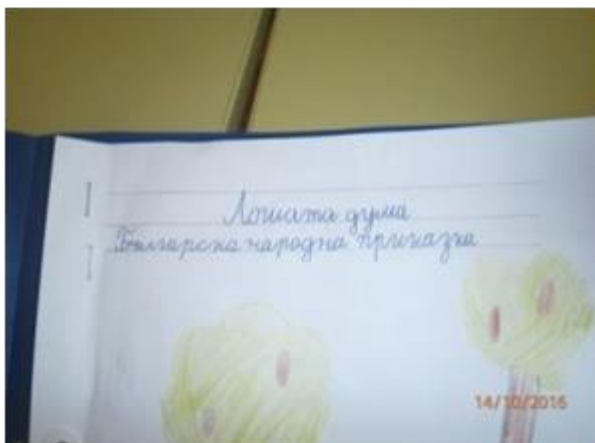 Лошата дума
Българска народна приказка
14/10/2016